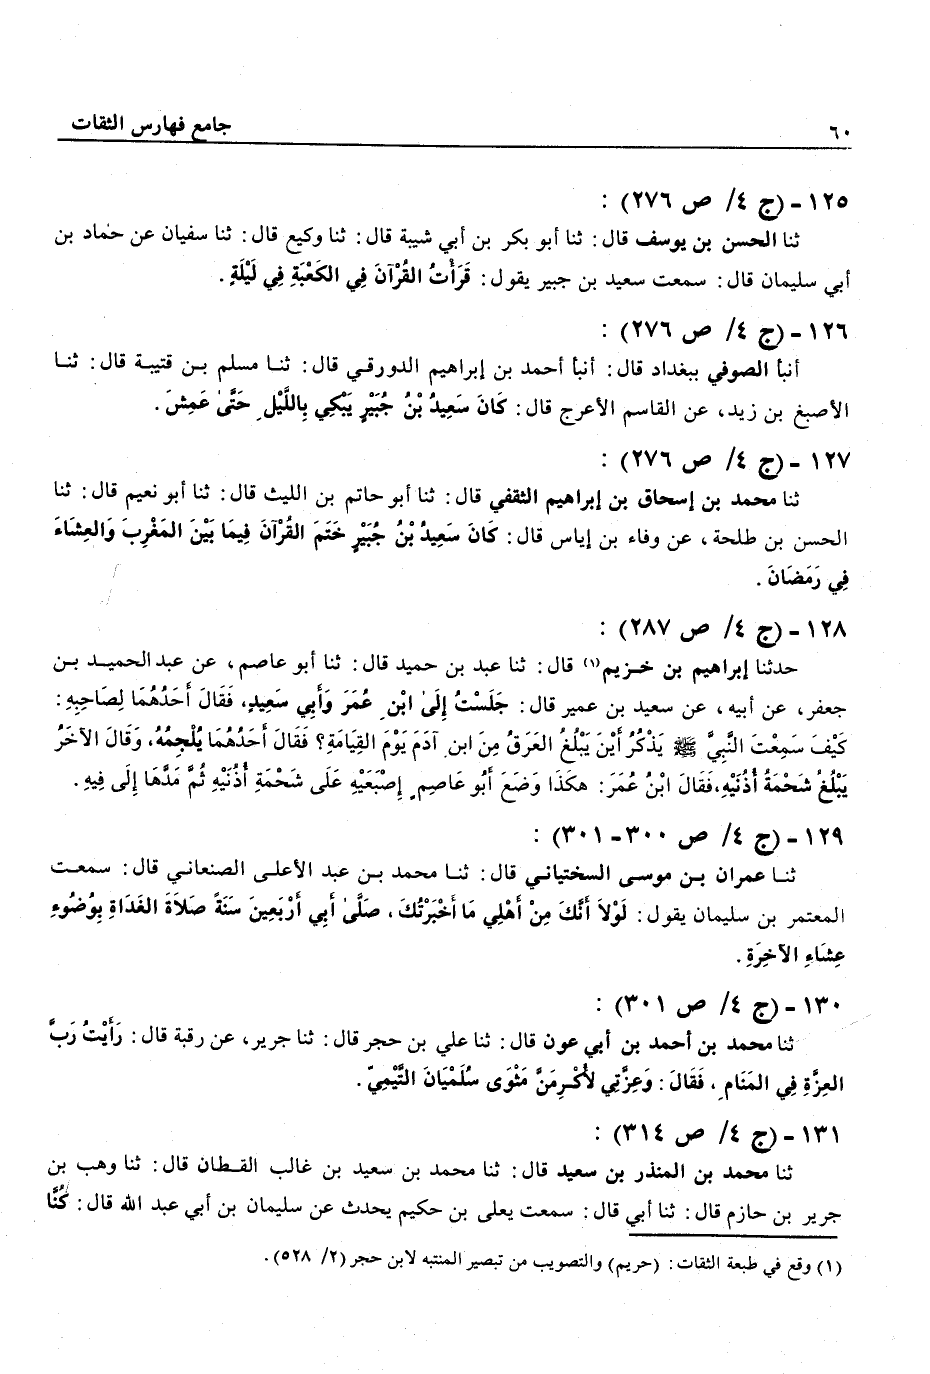 ٦٠ جامع فهارس الثقات
١٢٥ - (ج ٤/ ص ٢٧٦) :
ثنا الحسن بن يوسف قال : ثنا أبو بكر بن أبي شيبة قال : ثنا وكيع قال : ثنا سفيان عن حماد بن
أبي سليمان قال : سمعت سعيد بن جبير يقول : قَرَأْتُ القُرْآنَ فِي الكَعْبَةِ فِي لَيْلَةٍ .
١٢٦ - (ج ٤/ ص ٢٧٦) :
أنبأ الصوفي ببغداد قال : أنبأ أحمد بن إبراهيم الدورقي قال : ثنا مسلم بن قتيبة قال : ثنا
الأصبغ بن زيد، عن القاسم الأعرج قال : كَانَ سَعِيدُ بْنُ جُبَيْرٍ يَبْكِي بِاللَّيْلِ حَتَّىٰ عَمِشَ .
١٢٧ - (ج ٤/ ص ٢٧٦) :
ثنا محمد بن إسحاق بن إبراهيم الثقفي قال : ثنا أبو حاتم بن الليث قال : ثنا أبو نعيم قال : ثنا
الحسن بن طلحة ، عن وفاء بن إياس قال : كَانَ سَعِيدُ بْنُ جُبَيْرٍ خَتَمَ القُرْآنَ فِيمَا بَيْنَ المَغْرِبَ وَالعِشَاءَ
فِي رَمَضَانَ .
١٢٨ - (ج ٤/ ص ٢٨٧) :
حدثنا إبراهيم بن خزيم(١) قال : ثنا عبد بن حميد قال : ثنا أبو عاصم ، عن عبد الحميد بن
جعفر، عن أبيه ، عن سعيد بن عمير قال : جَلَسْتُ إِلَىٰ ابْنِ عُمَرَ وَأَبِي سَعِيدٍ، فَقَالَ أَحَدُهُمَا لِصَاحِبِهِ :
كَيْفَ سَمِعْتَ النَّبِيَّ ﷺ يَذْكُرُ أَيْنَ يَبْلُغُ العَرَقُ مِنَ ابنِ آدَمَ يَوْمَ القِيَامَةِ؟ فَقَالَ أَحَدُهُمَا يُلْجِمُهُ، وَقَالَ الآخَرُ
يَبْلُغُ شَحْمَةُ أُذُنَيْهِ، فَقَالَ ابْنُ عُمَرَ : هكَذَا وَضَعَ أَبُو عَاصِمٍ إِصْبَعَيْهِ عَلَى شَحْمَةِ أُذُنَيْهِ ثُمَّ مَدَّهَا إِلَى فِيهِ .
١٢٩ - (ج ٤/ ص ٣٠٠-٣٠١) :
ثنا عمران بن موسى السختياني قال : ثنا محمد بن عبد الأعلى الصنعاني قال : سمعت
المعتمر بن سليمان يقول : لَوْلَا أَنَّكَ مِنْ أَهْلِي مَا أَخْبَرْتُكَ ، صَلَّىٰ أَبِي أَرْبَعِينَ سَنَةً صَلَاةَ الغَدَاةِ بِوُضُوءِ
عِشَاءِ الآخِرَةِ .
١٣٠ - (ج ٤/ ص ٣٠١) :
ثنا محمد بن أحمد بن أبي عون قال : ثنا علي بن حجر قال : ثنا جرير، عن رقبة قال : رَأَيْتُ رَبَّ
العِزَّةِ فِي المَنَامِ ، فَقَالَ : وَعِزَّتِي لأُكْرِمَنَّ مَثْوَى سُلَمْيَانَ التَّيْمِيّ .
١٣١ - (ج ٤/ ص ٣١٤) :
ثنا محمد بن المنذر بن سعيد قال : ثنا محمد بن سعيد بن غالب القطان قال : ثنا وهب بن
جرير بن حازم قال : ثنا أبي قال : سمعت يعلى بن حكيم يحدث عن سليمان بن أبي عبد الله قال : كُنَّا
(١) وقع في طبعة الثقات : (حريم) والتصويب من تبصير المنتبه لابن حجر (٢/ ٥٢٨) .